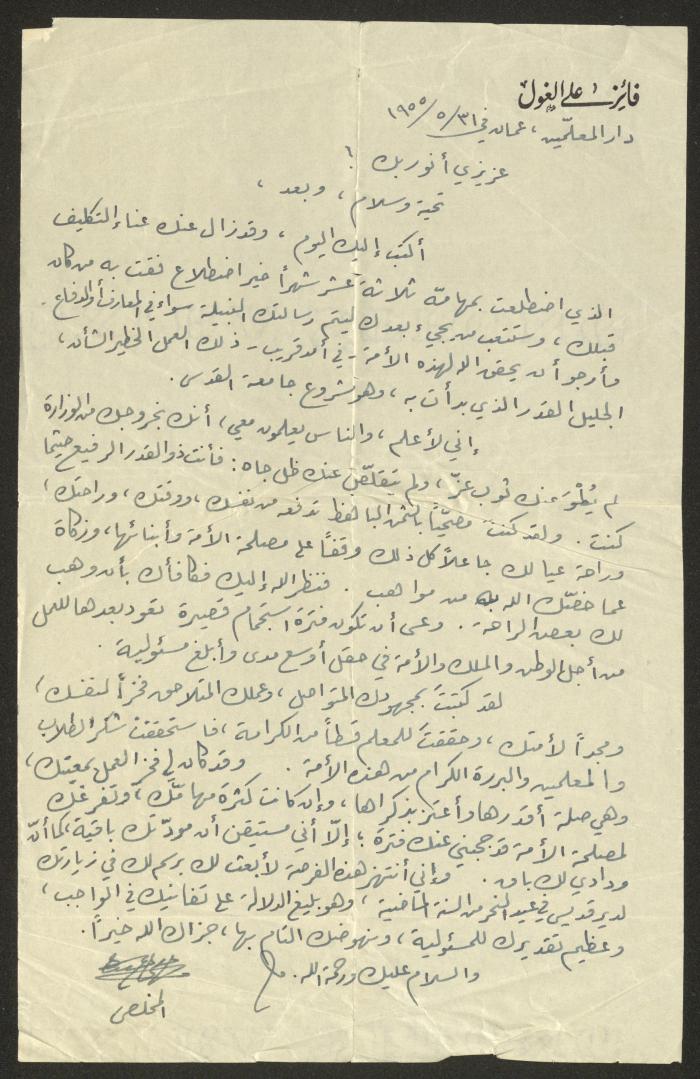 فائز علي الغول
دار المعلمين، عمان في ٣١/٥/١٩٥٥
عزيزي أنور بك؛
تحية وسلام، وبعد،
أكتب إليك اليوم، وقد زال عنك عناء التكليف
الذي اضطلعت بمهامّه ثلاثة عشر شهراً خير اضطلاع نقت به من كان
قبلك، وستتعب من يجيء بعدك ليتم رسالتك النبيلة سواء في المعارف أو الدفاع.
وأرجو أن يحقق الله لهذه الأمة - في أمد قريب - ذلك العمل الخطير الشأن،
الجليل القدر الذي بدأت به، وهو مشروع جامعة القدس.
إني لأعلم، والناس يعلمون معي، أنك بخروجك من الوزارة
لم يُطْوَ عنك ثوب عزّ، ولم يتقلّص عنك ظل جاه: فأنت ذو القدر الرفيع حيثما
كنت. ولقد كنت مضحّياً بالثمن الباهظ تدفعه من نفسك، ووقتك، وراحتك،
وراحة عيالك جاعلاً كل ذلك وقفاً على مصلحة الأمة وأبنائها، وزكاة
عما خصّك الله به من مواهب. فنظر الله إليك فكافأك بأن وهب
لك بعض الراحة. وعسى أن تكون فترة استجمام قصيرة تعود بعدها للعمل
من أجل الوطن والملك والأمة في حقل أوسع مدى وأبلغ مسئولية.
لقد كتبت بمجهودك المتواصل، وعملك المتلاحق فخراً لنفسك،
ومجداً لأمتك، وحققت للمعلم قسطاً من الكرامة، فاستحققت شكر الطلاب
والمعلمين والبررة الكرام من هذه الأمة. وقد كان لي فخر العمل بمعيتك،
وهي صلة أقدرها وأعتز بذكراها، وإن كانت كثرة مهامّك، وتفرغك
لمصلحة الأمة قد حجبني عنك فترة؛ إلّا أني مستيقن أن مودّتك باقية، كما أنّ
ودادي لك باق. وإني أنتهز هذه الفرصة لأبعث لك برسم لك في زيارتك
لدير قديس في عيد النحر من السنة الماضية، وهو بليغ الدلالة على تفانيك في الواجب،
وعظيم تقديرك للمسئولية، ونهوضك التام بها، جزاك الله خيراً.
والسلام عليك ورحمة الله.
المخلص